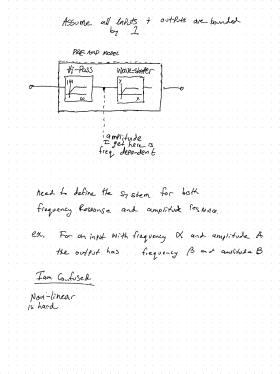 Assume all inputs + outputs are bounded
by 1
PRE AMP MODEL
Hi-Pass
Waveshaper
amplitude
I get here is
freq dependent
need to define the system for both
frequency Response and amplitude response.
ex. For an input with frequency α and amplitude A
the output has frequency β and amplitude B
I am Confused
Non-linear
is hard